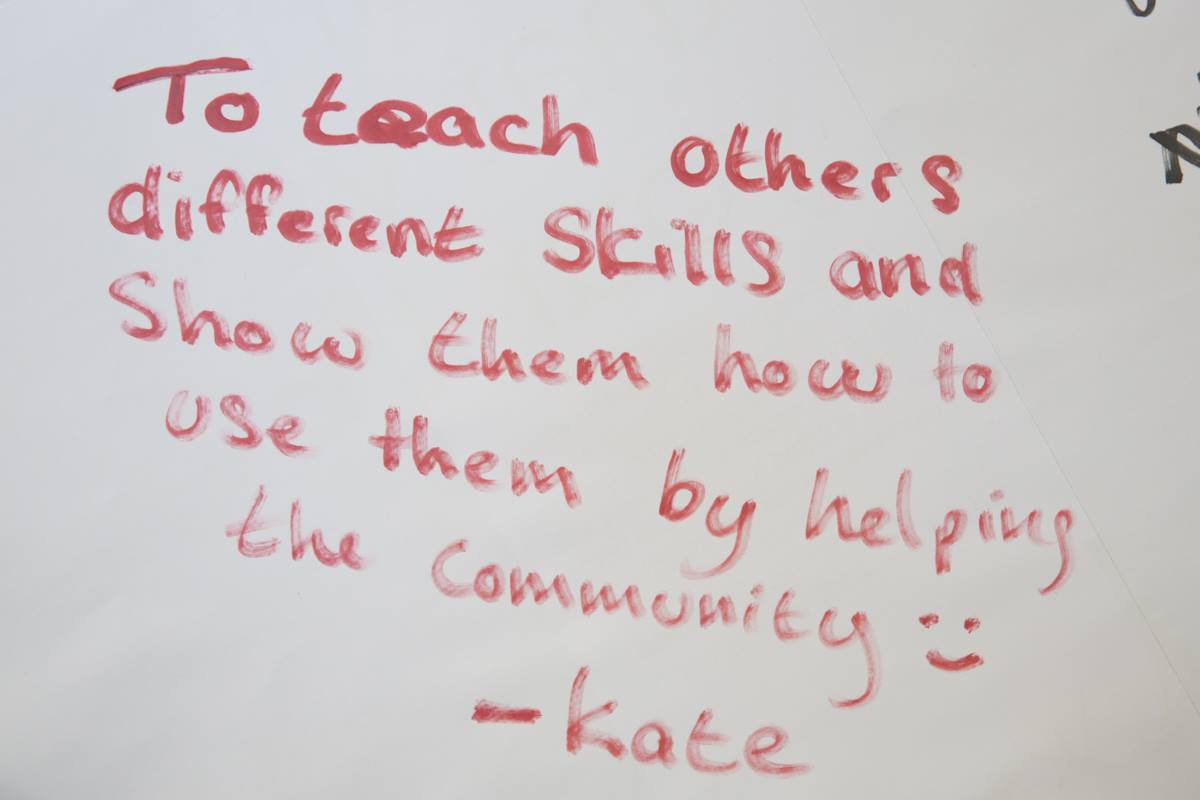 To teach others
different Skills and
Show them how to
use them by helping
the community :)
- Kate